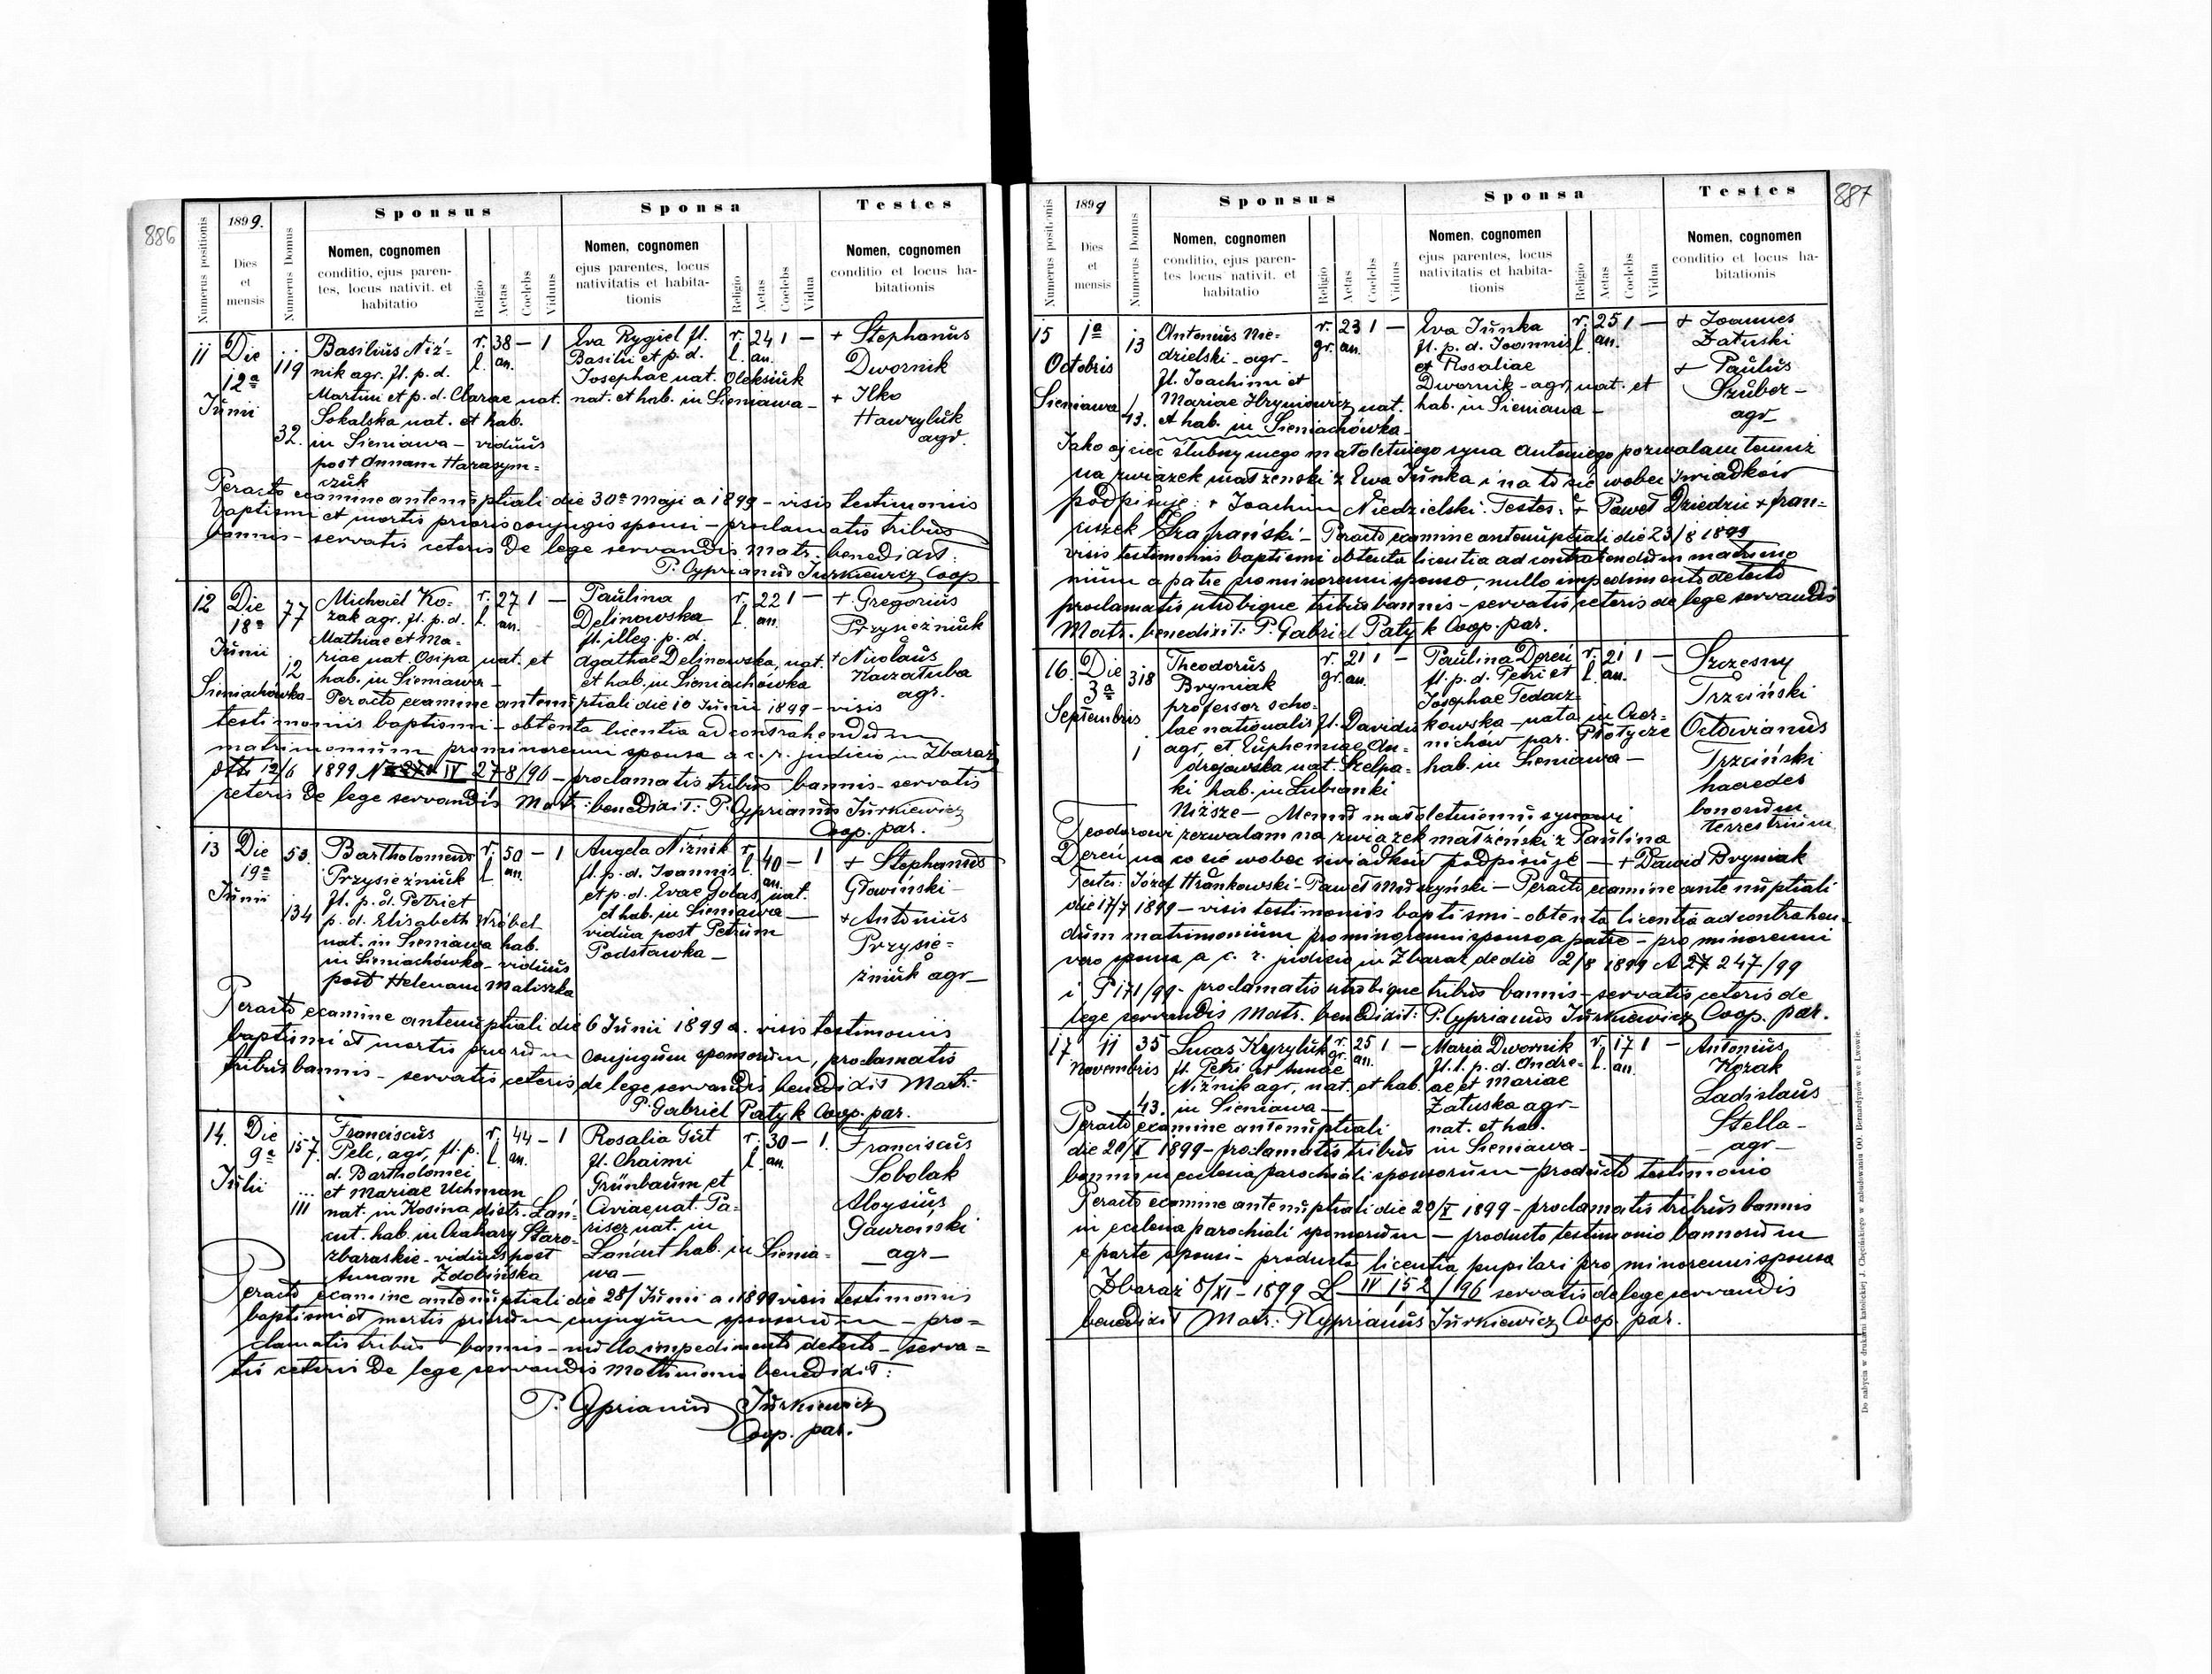 886
Numerus positionis
1899.
Dies
et
mensis
Numerus Domus
Sponsus
Nomen, cognomen
conditio, ejus paren-
tes, locus nativit. et
habitatio
Religio
Aetas
Coelebs
Viduus
Sponsa
Nomen, cognomen
ejus parentes, locus
nativitatis et habita-
tionis
Religio
Aetas
Coelebs
Vidua
Testes
Nomen, cognomen
conditio et locus ha-
bitationis
11
Die
12a
Junii
119
32.
Basilius Niż-
nik agr. fl. p. d.
Martini et p. d. Clarae
Sokalska nat. et hab.
in Sieniawa – viduus
post Annam Harasym-
czuk
r. l.
38 an.
– 1
Eva Rygiel fl.
Basilii et p. d.
Josephae nat. Oleksiuk
nat. et hab. in Sieniawa –
r. l.
24 an.
1 –
+ Stephanus
Dwornik
+ Ilko
Hawryluk
agr.
Peracto examine antenuptiali die 30a Maji a 1899 – visis testimoniis
baptismi et mortis prioris conjugis sponsi – proclamatis tribus
bannis – servatis ceteris de lege servandis Matr. benedixit:
P. Cyprianus Jurkiewicz Coop
12
Die
18a
Junii
Sieniachówka
77
12
Michaël Ko-
zak agr. fl. p. d.
Mathiae et Ma-
riae nat. Osipa nat. et
hab. in Sieniawa –
r. l.
27 an.
1 –
Paulina
Delinowska
fl. illeg. p. d.
Agathae Delinowska, nat.
et hab. in Sieniachówka
r. l.
22 an.
1 –
+ Gregorius
Przysiężniuk
+ Nicolaus
Kaczałuba
agr.
Peracto examine antenuptiali die 10 Junii 1899 – visis
testimoniis baptismi – obtenta licentia ad contrahendum
matrimonium pro minorenni sponsa a c. r. judicio in Zbaraż
dtto 12/6 1899 IV 278/96 – proclamatis tribus bannis – servatis
ceteris de lege servandis Matr. benedixit: P. Cyprianus Jurkiewicz
Coop. par.
13
Die
19a
Junii
53.
134
Bartholomeus
Przysiężniuk
fl. p. d. Petri et
p. d. Elisabeth Wróbel
nat. in Sieniawa hab.
in Sieniachówka – viduus
post Helenam Maliszka
r. l.
50 an.
– 1
Angela Niżnik
fl. p. d. Joannis
et p. d. Evae Golas, nat.
et hab. in Sieniawa –
vidua post Petrum
Podstawka –
r. l.
40 an.
– 1
+ Stephanus
Głowiński –
+ Antonius
Przysię-
żniuk agr –
Peracto examine antenuptiali die 6 Junii 1899 a. visis testimoniis
baptismi et mortis priorum conjugum sponsorum, proclamatis
tribus bannis – servatis ceteris de lege servandis benedixit Matr:
P. Gabriel Patyk Coop. par.
14.
Die
9a
Julii
157.
111
Franciscus
Pelc, agr, fl. p.
d. Bartholomei
et Mariae Uchman
nat. in Kosina distr. Łań-
cut. hab. in Czahary Staro-
zbaraskie – viduus post
Annam Zdobińska
r. l.
44 an.
– 1
Rosalia Gut
fl. Chaimi
Grünbaum et
Civiae nat. Pa-
riser nat. in
Łańcut hab. in Sienia-
wa –
r. l.
30 an.
– 1.
Franciscus
Sobolak
Aloysius
Gawroński
– agr –
Peracto examine antenuptiali die 28/ Junii a. 1899 visis testimoniis
baptismi et mortis priorum conjugum sponsorum – pro-
clamatis tribus bannis – nullo impedimento detecto – serva-
tis ceteris de lege servandis Matrimonio benedixit:
P. Cyprianus Jurkiewicz
Coop. par.
887
Numerus positionis
1899
Dies
et
mensis
Numerus Domus
Sponsus
Nomen, cognomen
conditio, ejus paren-
tes locus nativit. et
habitatio
Religio
Aetas
Coelebs
Viduus
Sponsa
Nomen, cognomen
ejus parentes, locus
nativitatis et habita-
tionis
Religio
Aetas
Coelebs
Vidua
Testes
Nomen, cognomen
conditio et locus ha-
bitationis
15
1a
Octobris
Sieniawa
13
43.
Antonius Nie-
dzielski – agr –
fl. Joachimi et
Mariae Hryniowicz nat.
et hab. in Sieniachówka –
r. gr.
23 an.
1 –
Eva Junka
fl. p. d. Joannis
et Rosaliae
Dwornik – agr, nat. et
hab. in Sieniawa –
r. l.
25 an.
1 –
+ Joannes
Załuski
+ Paulus
Szuber –
agr –
Jako ojciec ślubny mego małoletniego syna Antoniego pozwalam temuż
na związek małżeński z Ewa Junka i na to się wobec świadków
podpisuję: + Joachum Niedzielski. Testes: + Paweł Dziedzic + Fran-
ciszek Szafrański – Peracto examine antenuptiali die 23/8 1899
visis testimoniis baptismi obtenta licentia ad contrahendum matrimo
nium a patre pro minorenni sponso, nullo impedimento detecto
proclamatis utrobique tribus bannis – servatis ceteris de lege servandis
Matr. benedixit: P. Gabriel Patyk Coop. par.
16.
Die
3a
Septembris
318
1
Theodorus
Bryniak
professor scho-
lae nationalis fl. Davidis
agr, et Euphemiae An-
drejowska nat. Szelpa-
ki hab. in Łubianki
Niższe –
r. gr.
21 an.
1 –
Paulina Dereń
fl. p. d. Petri et
Josephae Fedacz-
kowska – nata in Czer-
nichów par. Płotycze
hab. in Sieniawa –
r. l.
21 an.
1 –
Szczesny
Trzciński
Octavianus
Trzciński
haeredes
bonorum
terrestrium
Memu małoletniemu synowi
Teodorowi zezwalam na związek małżeński z Paulina
Dereń na co się wobec świadków podpisuję – + Dawid Bryniak
Testes: Józef Hrankowski – Paweł – Peracto examine antenuptiali
die 17/7 1899 – visis testimoniis baptismi – obtenta licentia ad contrahen-
dum matrimonium pro minorenni sponso a patre – pro minorenni
vero sponsa a c. r. judicio in Zbaraż de die 2/8 1899 A 27 247/99
i P 171/99 – proclamatis utrobique tribus bannis – servatis ceteris de
lege servandis Matr. benedixit: P. Cyprianus Jurkiewicz Coop. par.
17
11
Novembris
35
43.
Lucas Kyryluk
fl. Petri et Annae
Niżnik agr, nat. et hab.
in Sieniawa –
r. gr.
25 an.
1 –
Maria Dwornik
fl. l. p. d. Andre-
ae et Mariae
Załuska agr –
nat. et hab.
in Sieniawa –
r. l.
17 an.
1 –
Antonius
Kozak
Ladislaus
Stella –
– agr –
Peracto examine antenuptiali
die 20/X 1899 – proclamatis tribus
bannis in ecclesia parochiali sponsorum – producto testimonio
Peracto examine antenuptiali die 20/X 1899 – proclamatis tribus bannis
in ecclesia parochiali sponsorum – producto testimonio bannorum
e parte sponsi – producta licentia pupilari pro minorenni sponsa
Zbaraż 8/XI – 1899 L IV 152/96 servatis de lege servandis
benedixit Matr: P. Cyprianus Jurkiewicz Coop. par.
Do nabycia w drukarni katolickiej J. Chęcińskiego w zabudowaniu OO. Bernardynów we Lwowie.